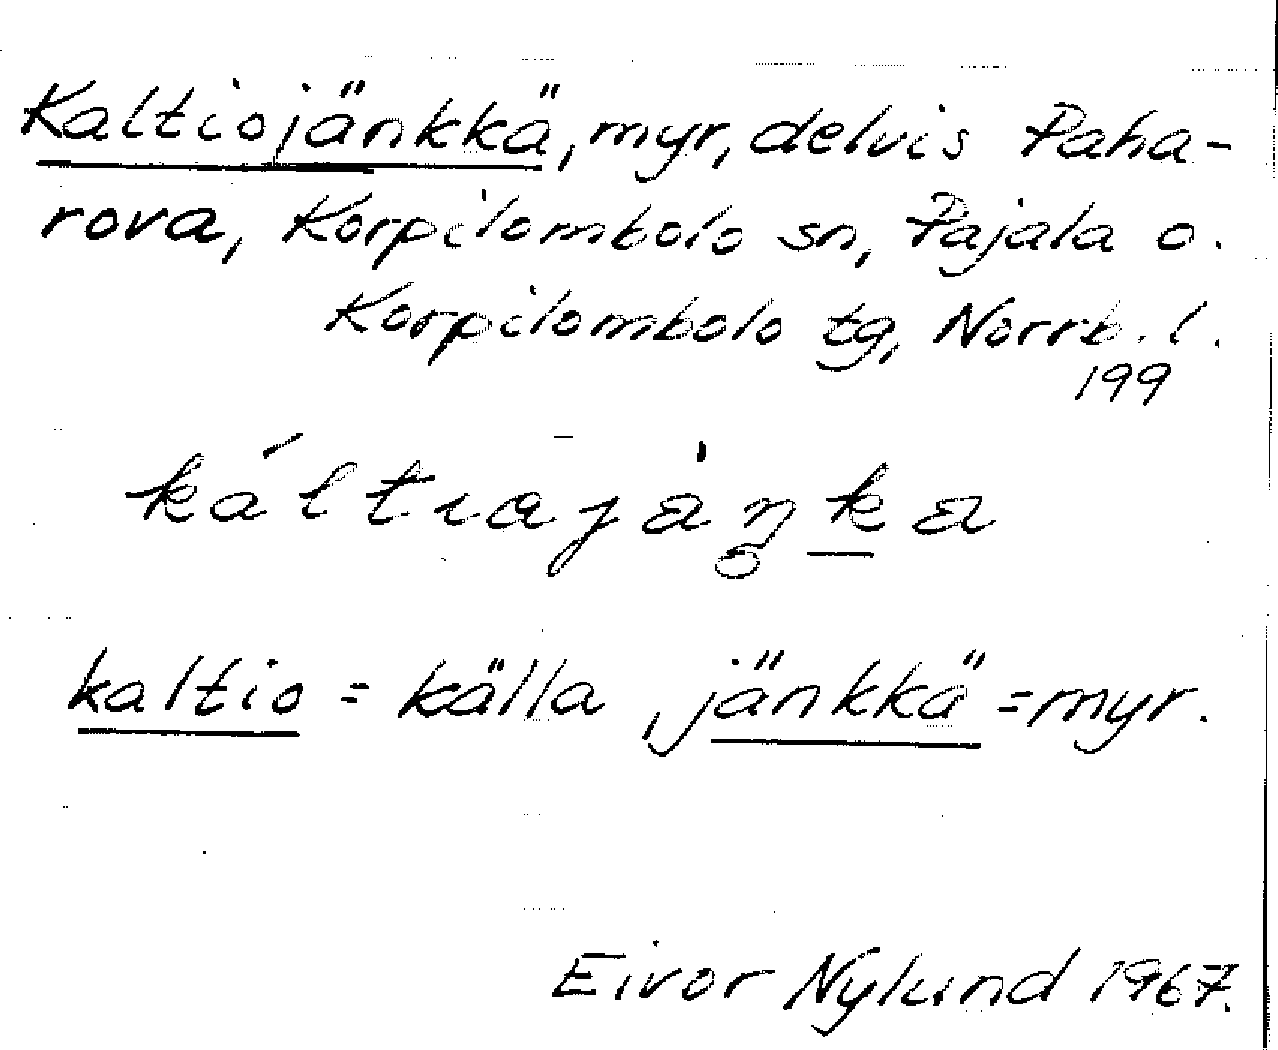 Kaltiojänkkä, myr, delvis Paha-
rova, Korpilombolo sn, Pajala o.
Korpilombolo tg, Norrb. l.
199
kaltio = källa, jänkkä = myr.
Eivor Nylund 1967.